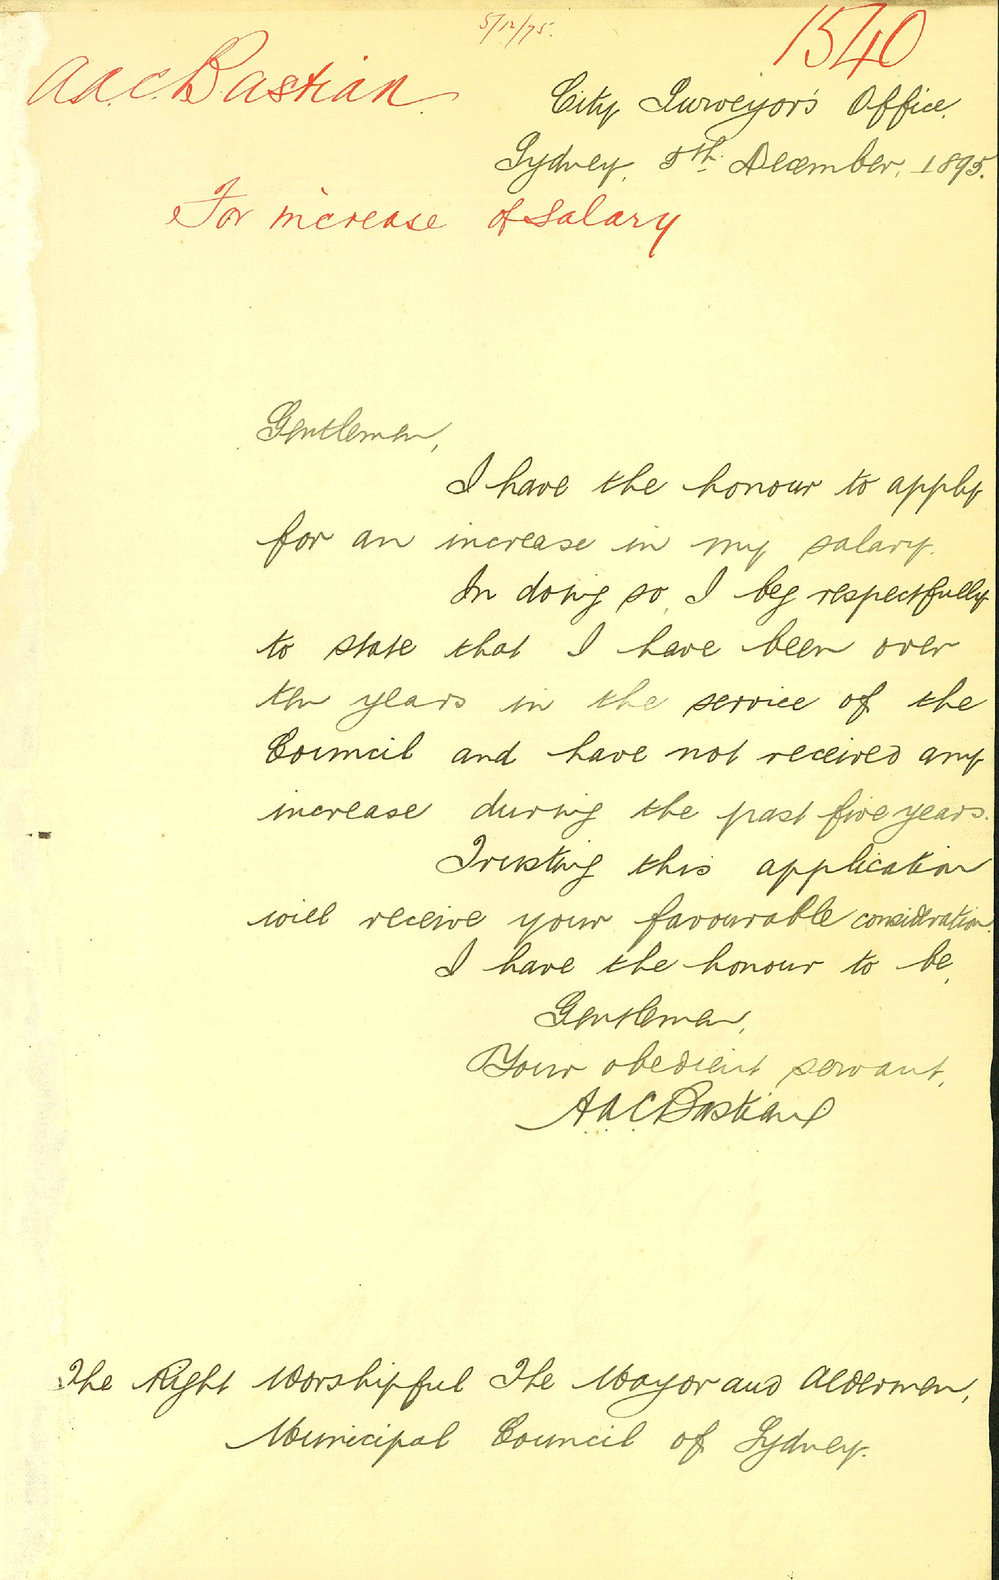 5/12/95.
1540
A.A.C. Bastian
City Surveyor's Office,
Sydney, 5th December, 1895.
For increase of Salary
Gentlemen,
I have the honour to apply
for an increase in my salary.
In doing so, I beg respectfully
to state that I have been over
ten years in the service of the
Council and have not received any
increase during the past five years.
Trusting this application
will receive your favourable consideration.
I have the honour to be,
Gentlemen,
Your obedient servant,
A.A.C. Bastian
The Right Worshipful The Mayor and Aldermen,
Municipal Council of Sydney.